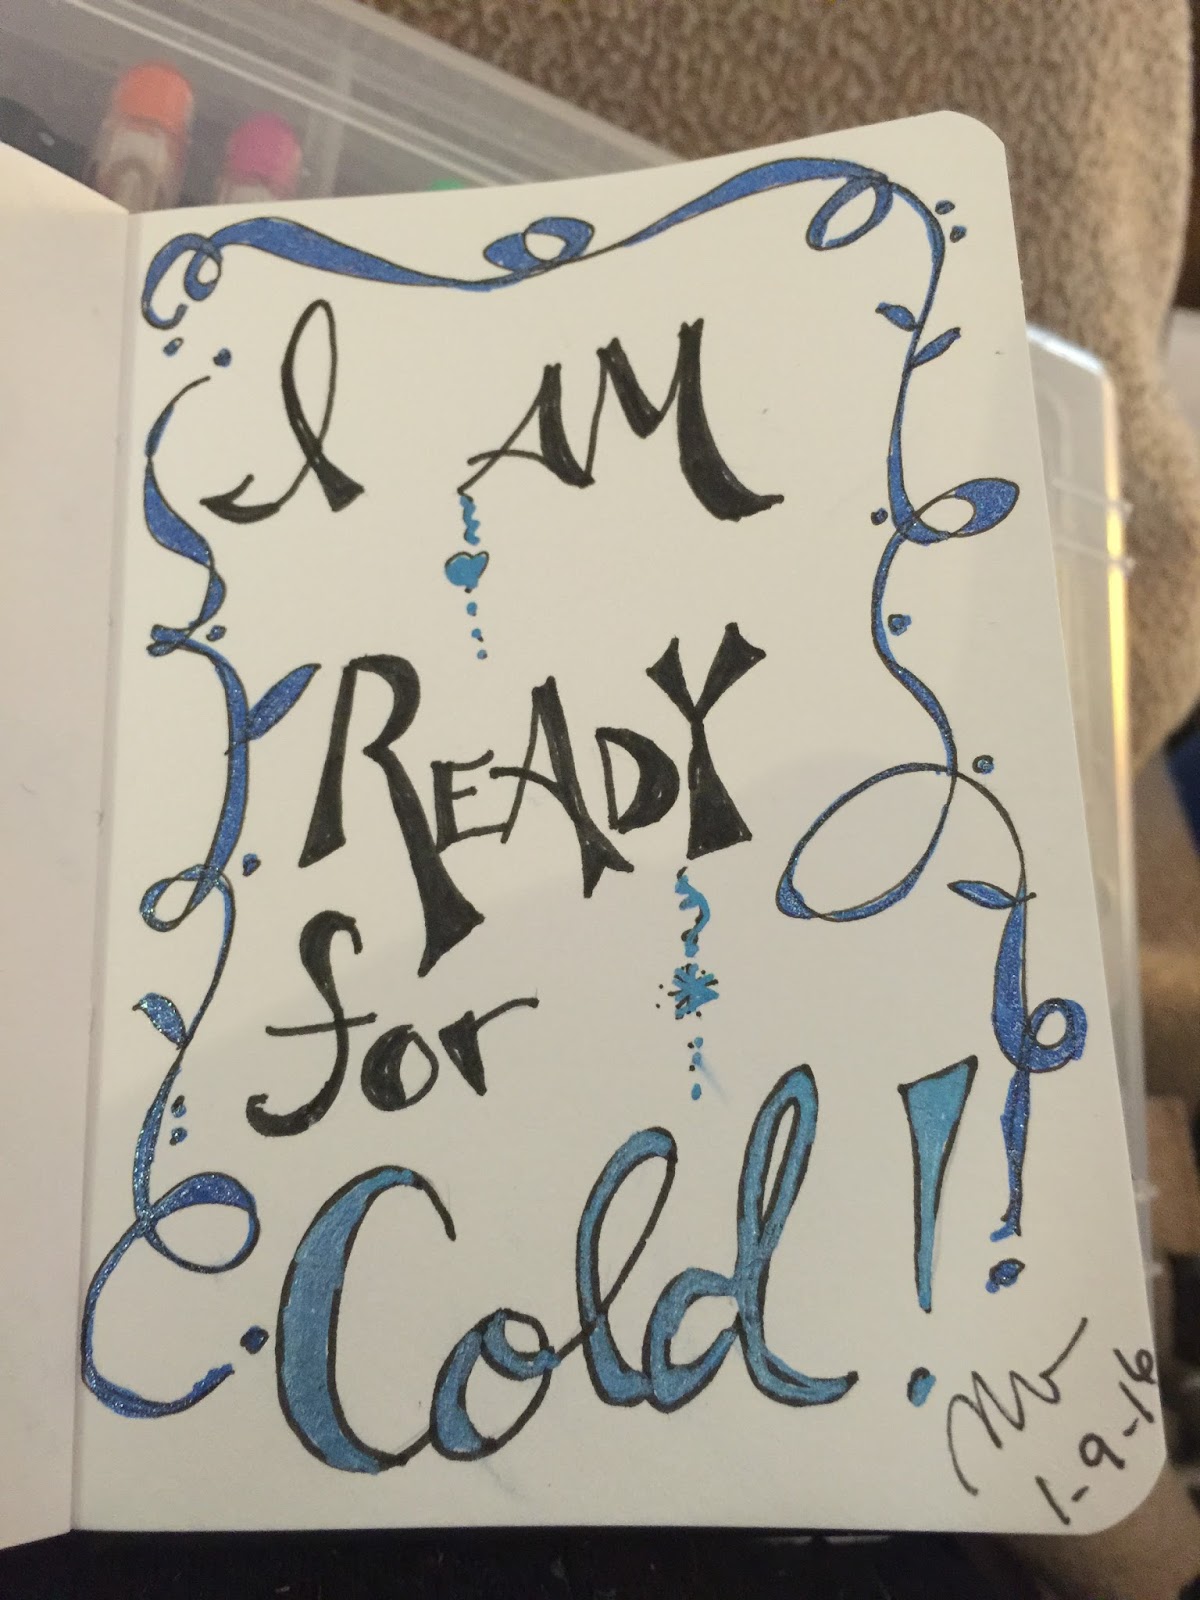 I AM
READY
for
Cold!
1-9-16